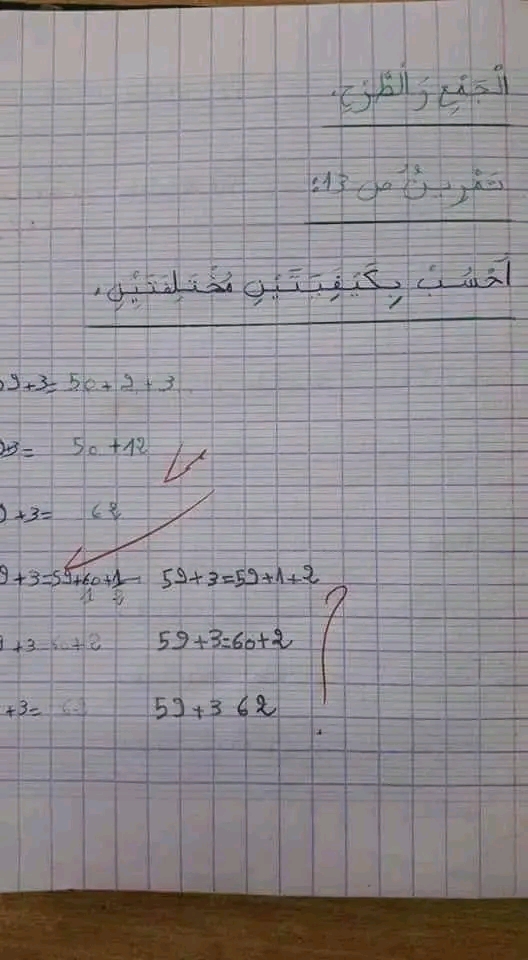 الْجَمْعِ وَ الطَّرْحِ.
تَمْرِينُ ص 13:
أَحْسُبُ بِكَيْفِيَتَيْنِ مُخْتَلِفَتَيْنِ.
9+3= 50+9+3
+3= 50+12
9+3= 62
9+3=59+60+1 59+3=59+1+2
1 2
9+3 60+2 59+3=60+2
+3= 62 59+3 62
?